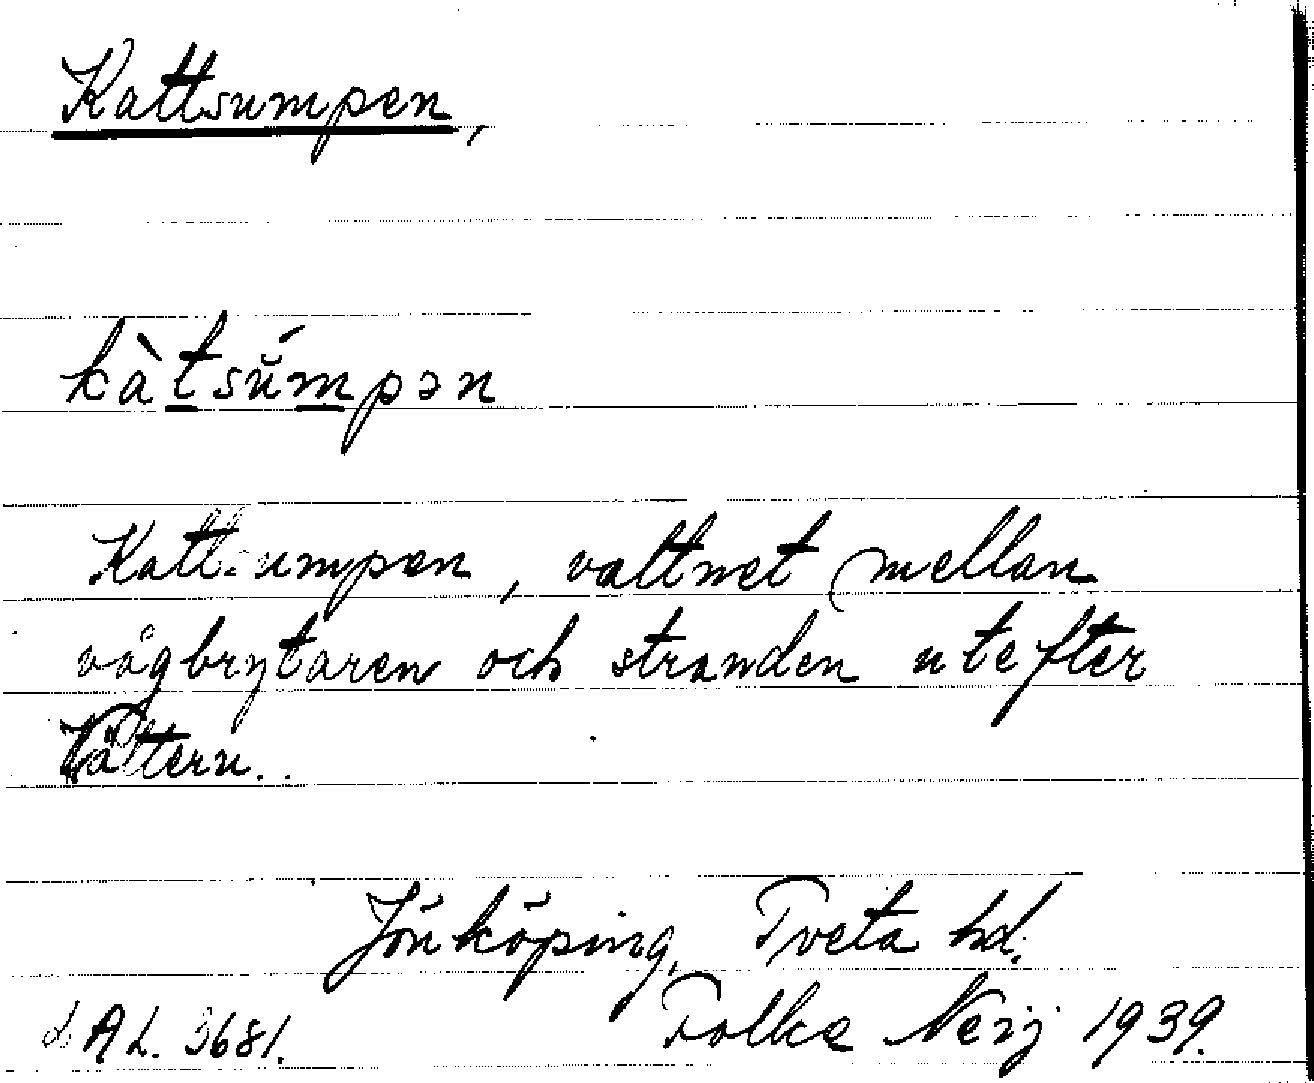 Kattsumpen,
kàtsŭ́mpən
Kattsumpen, vattnet mellan
vågbrytaren och stranden utefter
Vättern.
Jönköping, Tveta hd.
Folke Neij 1939.
AL. 3681.